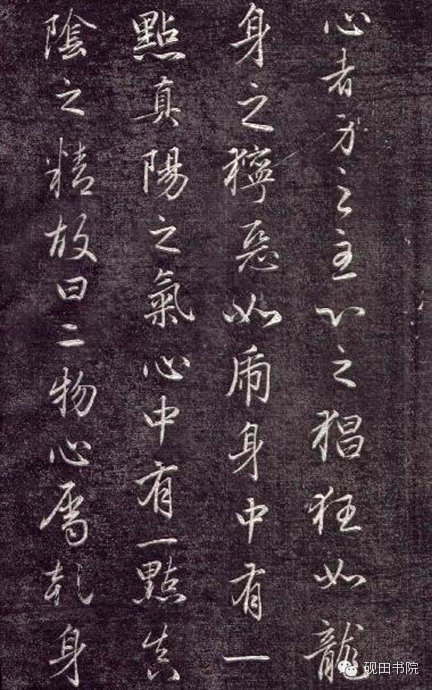 心者身之主心之猖狂如龍
身之獰惡如虎身中有一
點真陽之氣心中有一點真
陰之精故曰二物心屬乾身
砚田书院